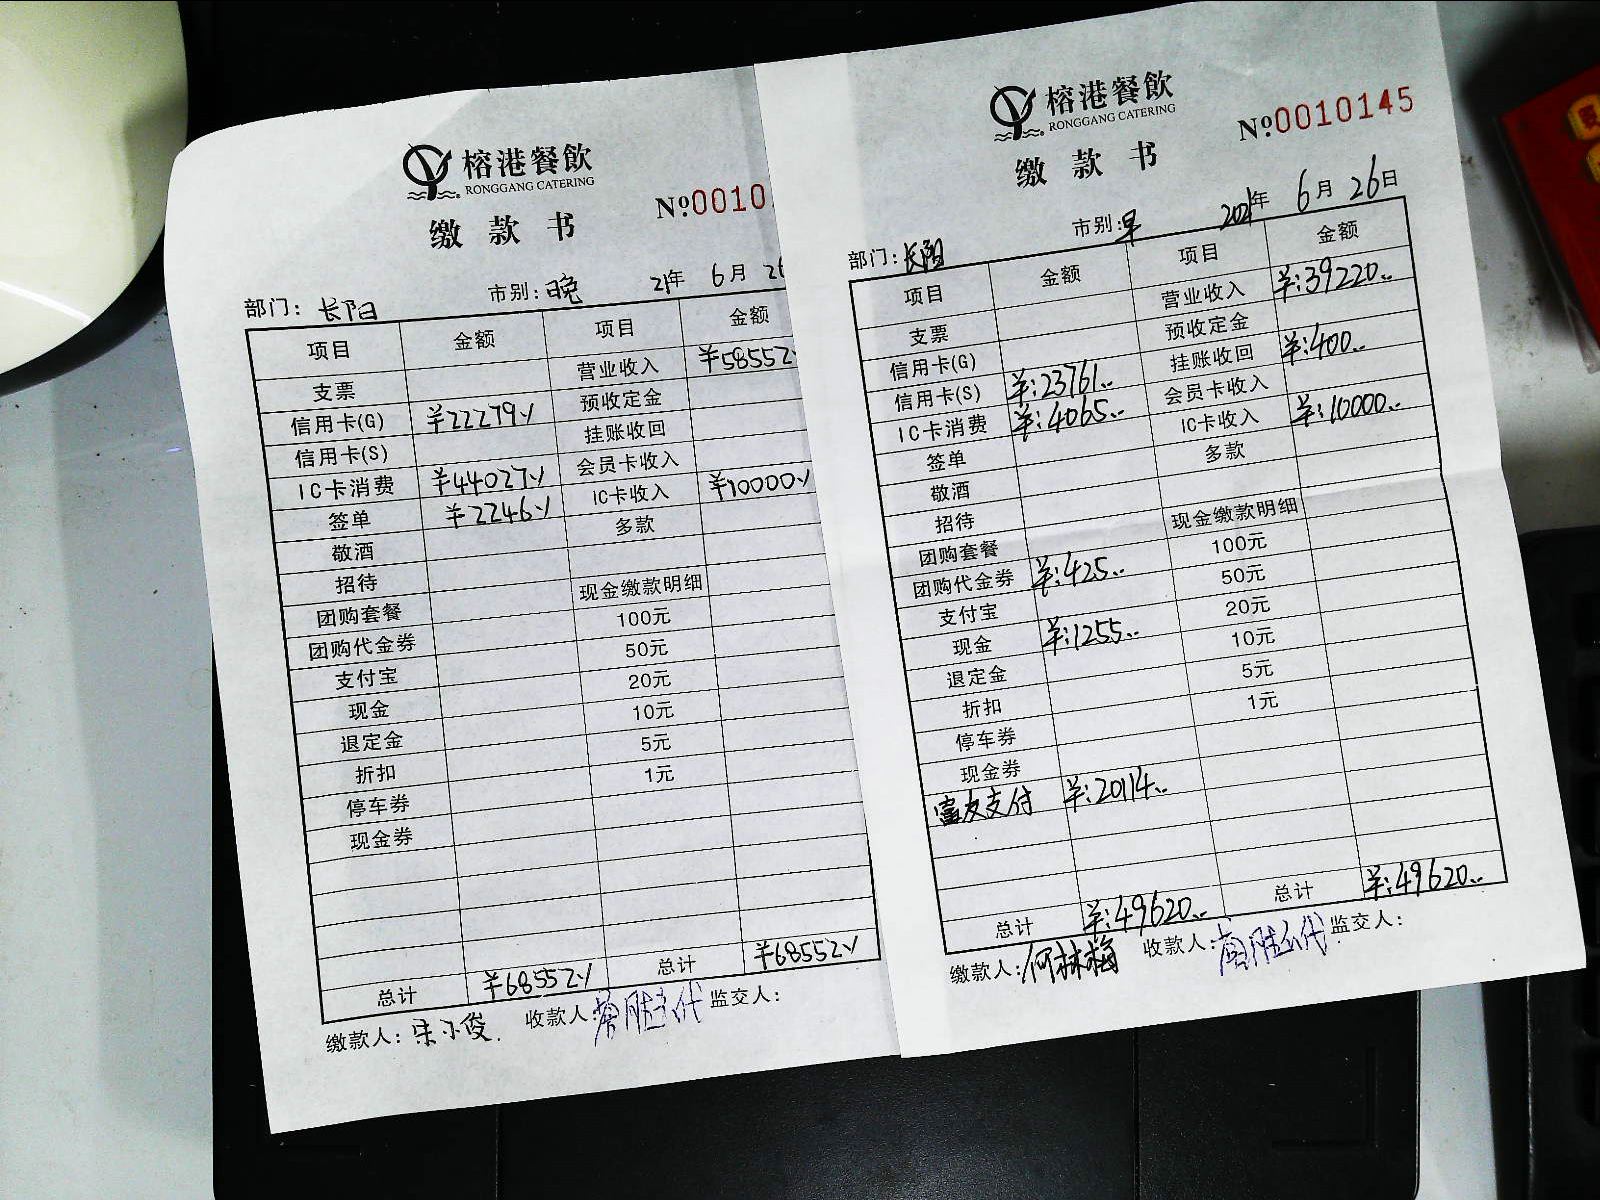 榕港餐飲
RONGGANG CATERING
缴款书
№0010
部门：长阳 市别：晚 21年 6月 26
项目 金额 项目 金额
支票 营业收入 ¥58552
信用卡(G) ¥22279 预收定金
信用卡(S) 挂账收回
IC卡消费 ¥44027 会员卡收入
签单 ¥2246 IC卡收入 ¥10000
敬酒 多款
招待
团购套餐 现金缴款明细
团购代金券 100元
支付宝 50元
现金 20元
退定金 10元
折扣 5元
停车券 1元
现金券
总计 ¥68552 总计 ¥68552
缴款人：宋小俊 收款人： 代 监交人：
榕港餐飲
RONGGANG CATERING
№0010145
缴款书
部门：长阳 市别：早 2021年 6月 26日
项目 金额 项目 金额
支票 营业收入 ¥:39220
信用卡(G) 预收定金
信用卡(S) ¥:23761 挂账收回 ¥:400
IC卡消费 ¥:4065 会员卡收入
签单 IC卡收入 ¥:10000
敬酒 多款
招待
团购套餐 现金缴款明细
团购代金券 ¥:425 100元
支付宝 50元
现金 ¥:1255 20元
退定金 10元
折扣 5元
停车券 1元
现金券
富友支付 ¥:20114
总计 ¥:49620 总计 ¥:49620
缴款人：何林梅 收款人： 代 监交人：